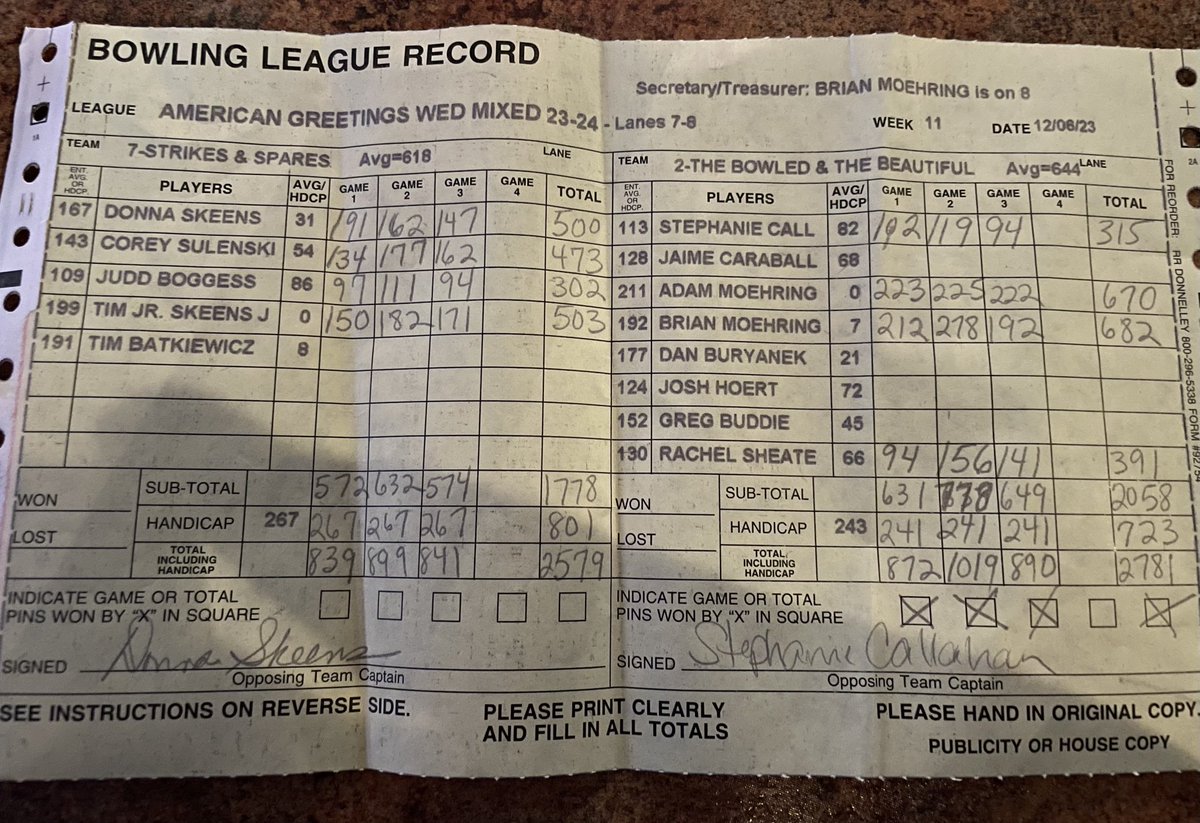 BOWLING LEAGUE RECORD
Secretary/Treasurer: BRIAN MOEHRING is on 8
LEAGUE AMERICAN GREETINGS WED MIXED 23-24 - Lanes 7-8 WEEK 11 DATE 12/06/23
TEAM 7-STRIKES & SPARES Avg=618 LANE
ENT. AVG. OR HDCP. PLAYERS AVG/HDCP GAME 1 GAME 2 GAME 3 GAME 4 TOTAL
167 DONNA SKEENS 31 191 162 147 500
143 COREY SULENSKI 54 134 177 162 473
109 JUDD BOGGESS 86 97 111 94 302
199 TIM JR. SKEENS J 0 150 182 171 503
191 TIM BATKIEWICZ 8
WON SUB-TOTAL 572 632 574 1778
LOST HANDICAP 267 267 267 267 801
TOTAL INCLUDING HANDICAP 839 899 841 2579
INDICATE GAME OR TOTAL
PINS WON BY "X" IN SQUARE
SIGNED Donna Skeens
Opposing Team Captain
TEAM 2-THE BOWLED & THE BEAUTIFUL Avg=644 LANE
ENT. AVG. OR HDCP. PLAYERS AVG/HDCP GAME 1 GAME 2 GAME 3 GAME 4 TOTAL
113 STEPHANIE CALL 82 102 119 94 315
128 JAIME CARABALL 68
211 ADAM MOEHRING 0 223 225 222 670
192 BRIAN MOEHRING 7 212 278 192 682
177 DAN BURYANEK 21
124 JOSH HOERT 72
152 GREG BUDDIE 45
130 RACHEL SHEATE 66 94 156 141 391
WON SUB-TOTAL 631 778 649 2058
LOST HANDICAP 243 241 241 241 723
TOTAL INCLUDING HANDICAP 872 1019 890 2781
INDICATE GAME OR TOTAL
PINS WON BY "X" IN SQUARE X X X X
SIGNED Stephanie Callahan
Opposing Team Captain
SEE INSTRUCTIONS ON REVERSE SIDE.
PLEASE PRINT CLEARLY
AND FILL IN ALL TOTALS
PLEASE HAND IN ORIGINAL COPY.
PUBLICITY OR HOUSE COPY
FOR REORDER: RR DONNELLEY 800-296-5338 FORM
1A
2A